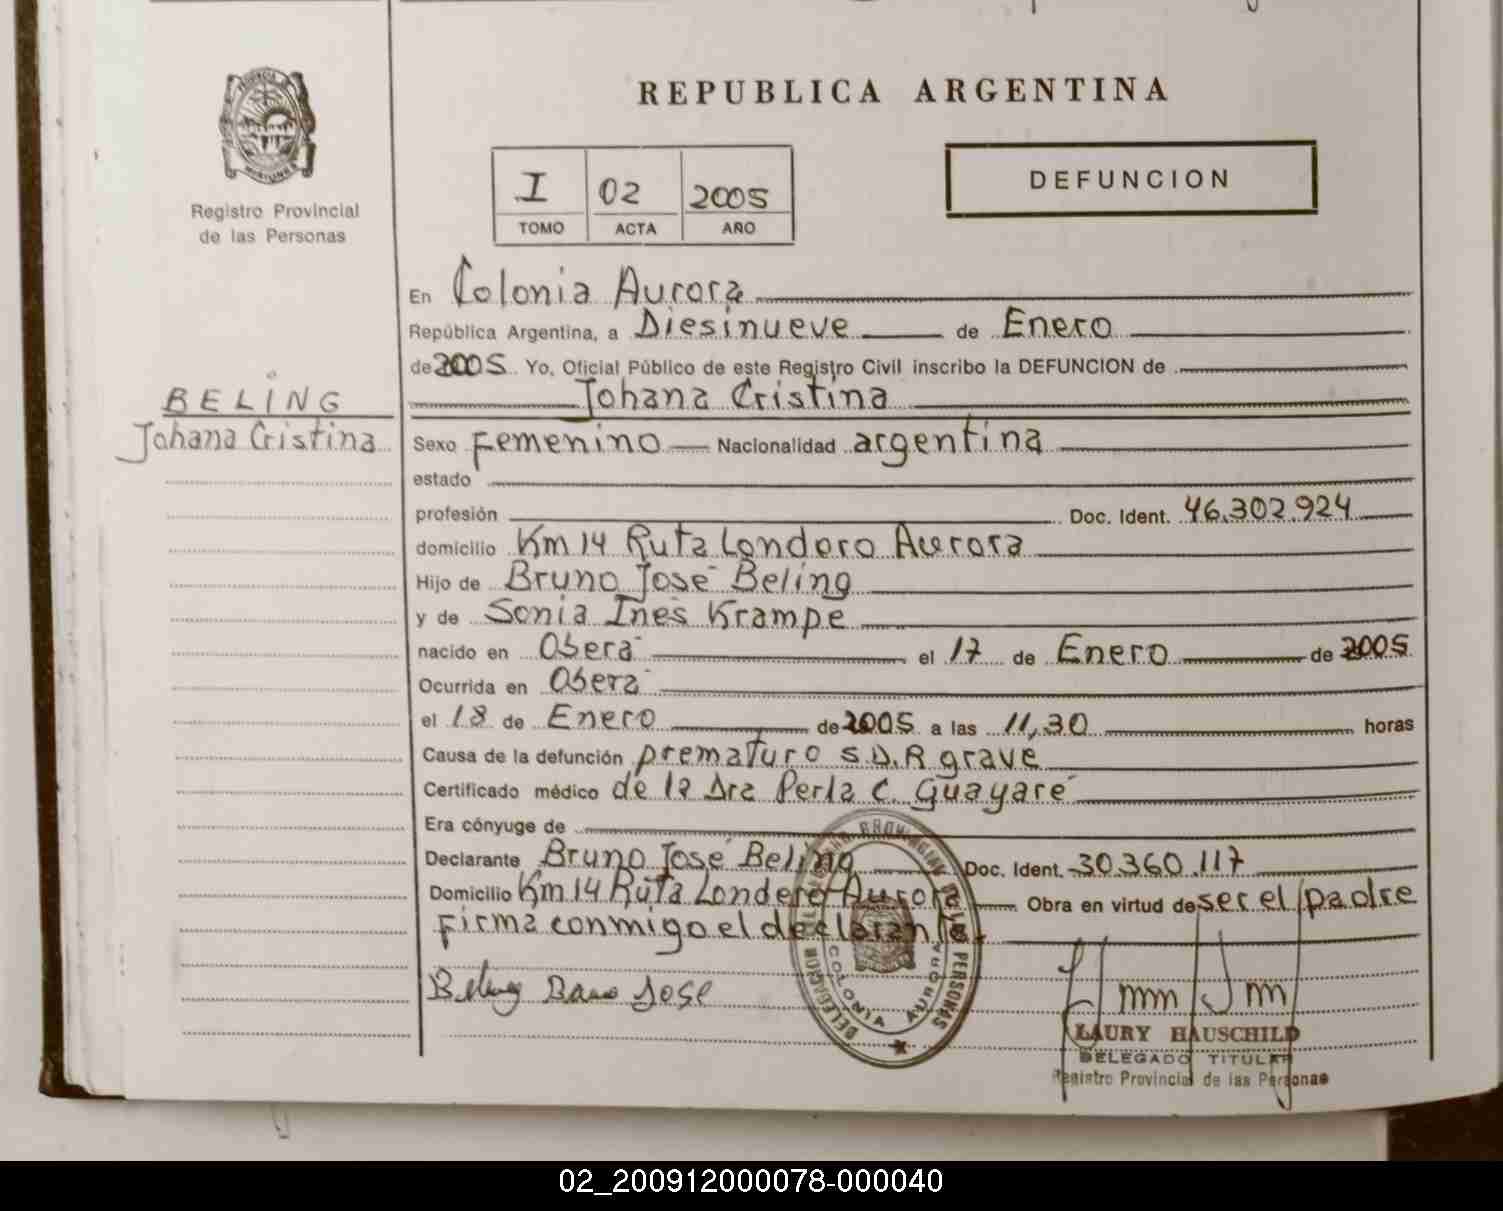 REPUBLICA ARGENTINA
Registro Provincial
de las Personas
I 02 2005
TOMO ACTA AÑO
DEFUNCION
BELING
Johana Cristina
En Colonia Aurora
República Argentina, a Diesinueve de Enero
de 2005 Yo, Oficial Público de este Registro Civil inscribo la DEFUNCION de
Johana Cristina
Sexo Femenino Nacionalidad argentina
estado
profesión Doc. Ident. 46.302.924
domicilio Km 14 Ruta Londero Aurora
Hijo de Bruno José Beling
y de Sonia Inés Krampe
nacido en Oberá el 17 de Enero de 2005
Ocurrida en Oberá
el 18 de Enero de 2005 a las 11,30 horas
Causa de la defunción prematuro S.D.R grave
Certificado médico de la Dra Perla C. Guayaré
Era cónyuge de
Declarante Bruno José Beling Doc. Ident. 30.360.117
Domicilio Km 14 Ruta Londero Aurora Obra en virtud de ser el padre
Firma conmigo el declarante.
Beling José
COLONIA AURORA
LAURY HAUSCHILD
DELEGADO TITULAR
Registro Provincial de las Personas
02_200912000078-000040